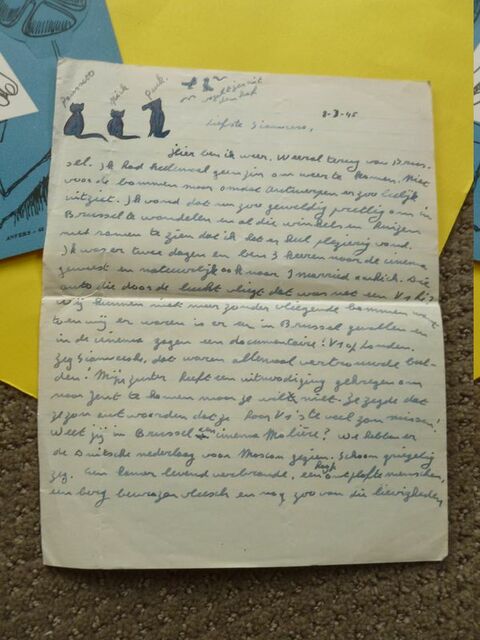 Puk.
vogeltjes uit
8-3-45
Liefste Giannosco,
Hier ben ik weer. Weeral terug van Brus-
sel. Ik had heelemaal geen zin om weer te komen. Niet
voor de bommen maar omdat Antwerpen er zoo leelijk
uitziet. Ik vond dat nu zoo geweldig prettig om in
Brussel te wandelen en al die winkels en huizen
met ramen te zien dat ik het er heel plezierig vond.
Ik was er twee dagen en ben 3 keeren naar de cinema
geweest en natuurlijk ook naar I married a witch. Die
auto die door de lucht vliegt dat was net een V1 hé?
Wij kunnen niet meer zonder vliegende bommen want
toen wij er waren is er een in Brussel gevallen en
in de cinema gegeven een documentaire: V1 op Londen.
zeg dat waren allemaal vertrouwde beel-
den! Mijn zuster heeft een uitnoodiging gekregen om
naar Gent te komen maar ze wilt niet. Ze zegde dat
ze zou antwoorden dat ze haar V1's te veel zou missen!
Weet jij in Brussel een cinema Molière? We hebben er
de Duitsche nederlaag voor Moscou gezien. Schoon griezelig
zeg. Een kamer levend verbrande, een hoop ontplofte menschen,
een berg bevrozen vleesch en nog zoo van die lievigheden,
ANTWERP